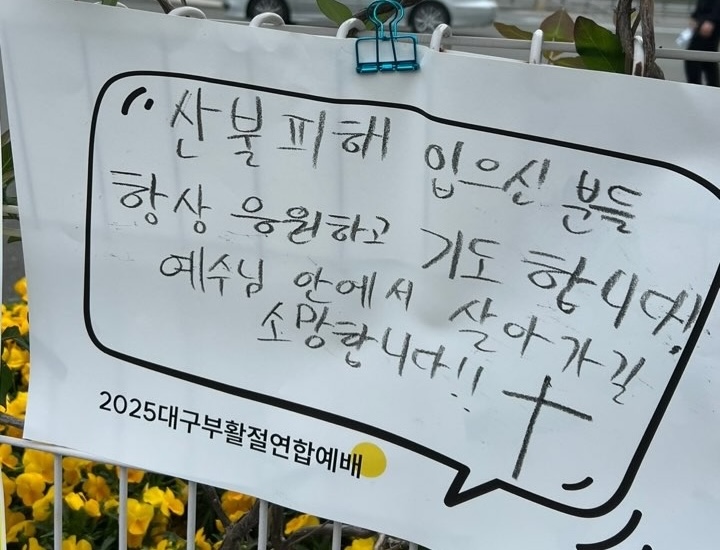 산불피해 입으신 분들
항상 응원하고 기도 합니다!
예수님 안에서 살아가길
소망합니다!!
2025대구부활절연합예배